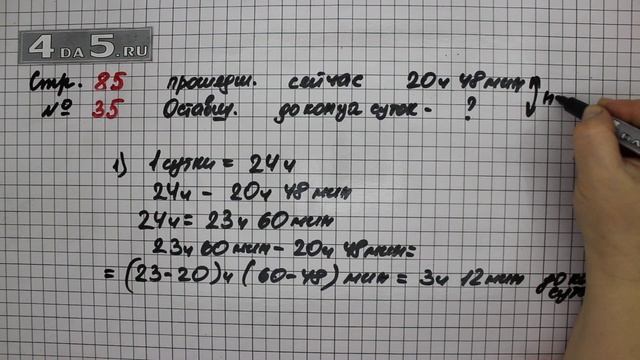 4 DA 5.RU
Стр. 85 прошедш. сейчас 20ч 48 мин
№ 35 Оставш. до конца суток - ?
1) 1 сутки = 24 ч
24ч - 20ч 48 мин
24ч = 23ч 60 мин
23ч 60 мин - 20ч 48 мин =
= (23-20)ч (60-48) мин = 3ч 12 мин до